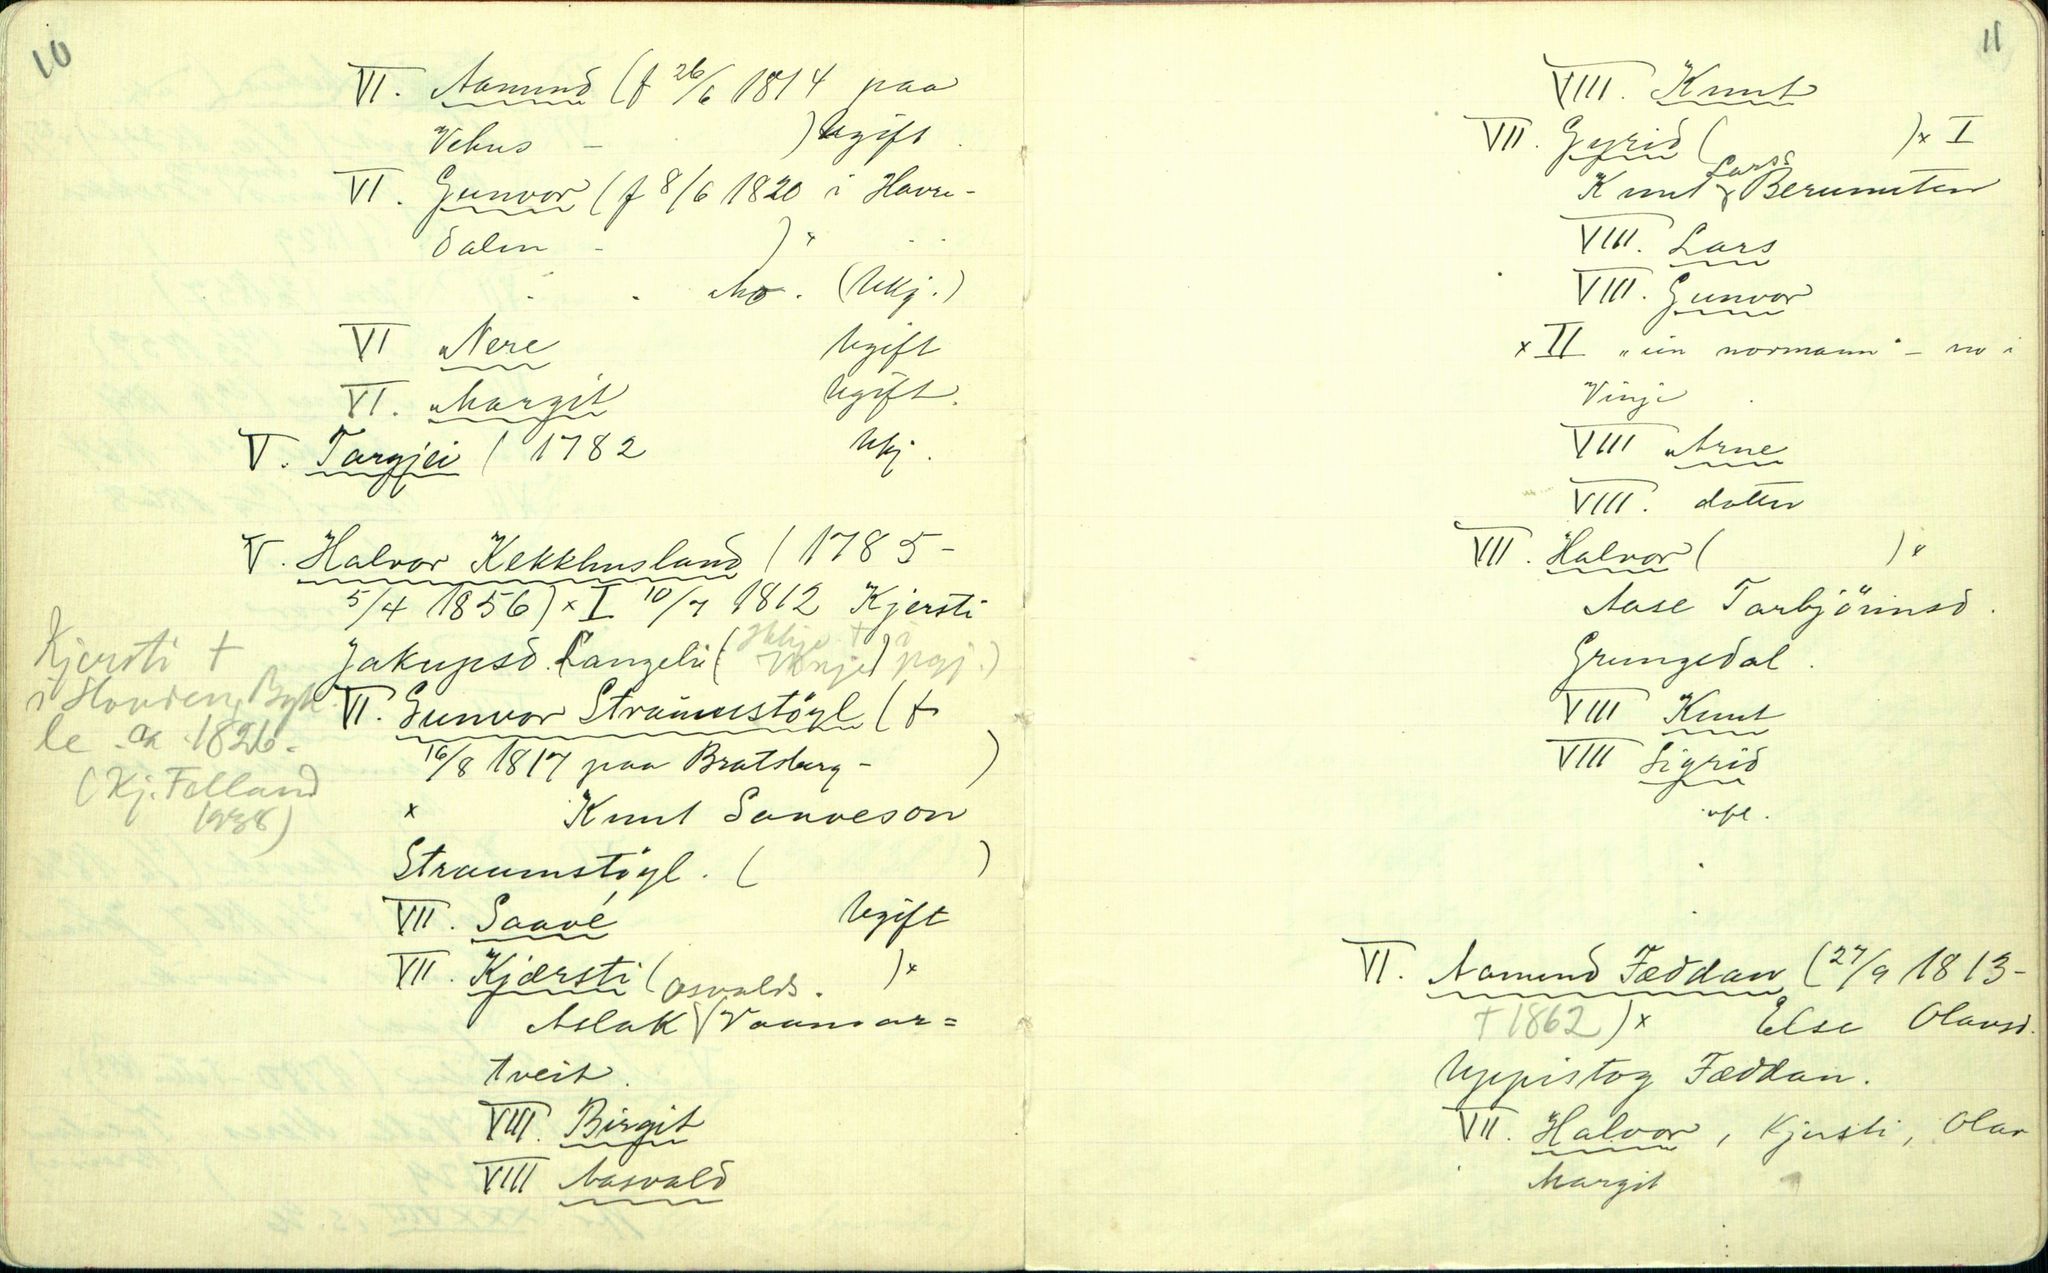 10
VI. Aamund (f 26/6 1814 paa
Vehus - ) Ugift.
VI. Gunvor (f 8/6 1820 i Havre-
dalen - ) x
Mo. (Ukj.)
VI Nere Ugift
VI. Margit Ugift.
V. Targjei ( 1782 Ukj.
V. Halvor Kekkhusland ( 1785-
5/4 1856) x I 10/7 1812 Kjersti
Jakupsd. Langeli ( † i Vinje) 
VI. Gunvor Straumstöyl (f
16/8 1817 paa Bratsberg - )
x Knut Saaveson
Straumstöyl. ( )
VII. Saavé Ugift
VII. Kjærsti ( ) x
Osvalds.
Aslak Vaamar=
tveit.
VIII. Birgit
VIII Aasvald
Kjersti †
i Hovden, Byk
le ca 1826.
(Kj. Folland
1938)
11
VIII. Knut
VII. Gyrid ( ) x I
Larss
Knut Berunuten
VIII. Lars
VIII. Gunvor
x II "ein normann" - no i
Vinje
VIII Arne
VIII. dotter
VII. Halvor ( ) x
Aase Tarbjörnsd.
Grungedal.
VIII Knut
VIII Sigrid
ofl.
VI. Aamund Fæddan (27/9 1813-
† 1862) x Else Olavsd.
Uppistog Fæddan.
VII. Halvor, Kjersti, Olav
Margit